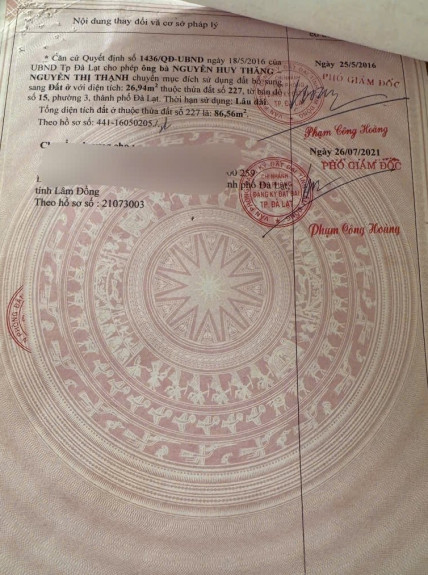 Nội dung thay đổi và cơ sở pháp lý
* Căn cứ Quyết định số 1436/QĐ-UBND ngày 18/5/2016 của
UBND Tp Đà Lạt cho phép ông bà NGUYỄN HUY THĂNG
NGUYỄN THỊ THẠNH chuyển mục đích sử dụng đất bổ sung
sang Đất ở với diện tích: 26,94m² thuộc thửa đất số 227, tờ bản đồ
số 15, phường 3, thành phố Đà Lạt. Thời hạn sử dụng: Lâu dài.
Tổng diện tích đất ở thuộc thửa đất số 227 là: 86,56m².
Theo hồ sơ số: 441-16050205
Ngày 25/5/2016
PHÓ GIÁM ĐỐC
Phạm Công Hoàng
Ngày 26/07/2021
PHÓ GIÁM ĐỐC
CHI NHÁNH
ĐĂNG KÝ ĐẤT ĐAI
TP. ĐÀ LẠT
Phạm Công Hoàng
phố Đà Lạt,
tỉnh Lâm Đồng
Theo hồ sơ : 21073003